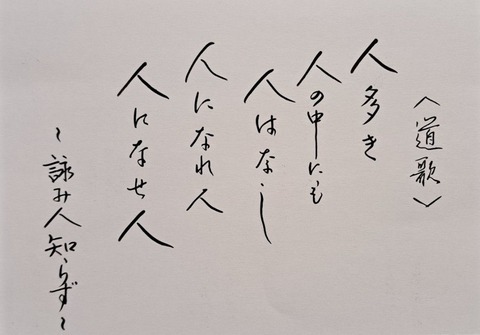 〈道歌〉
人多き
人の中にも
人はなし
人になれ人
人になせ人
~詠み人知らず~